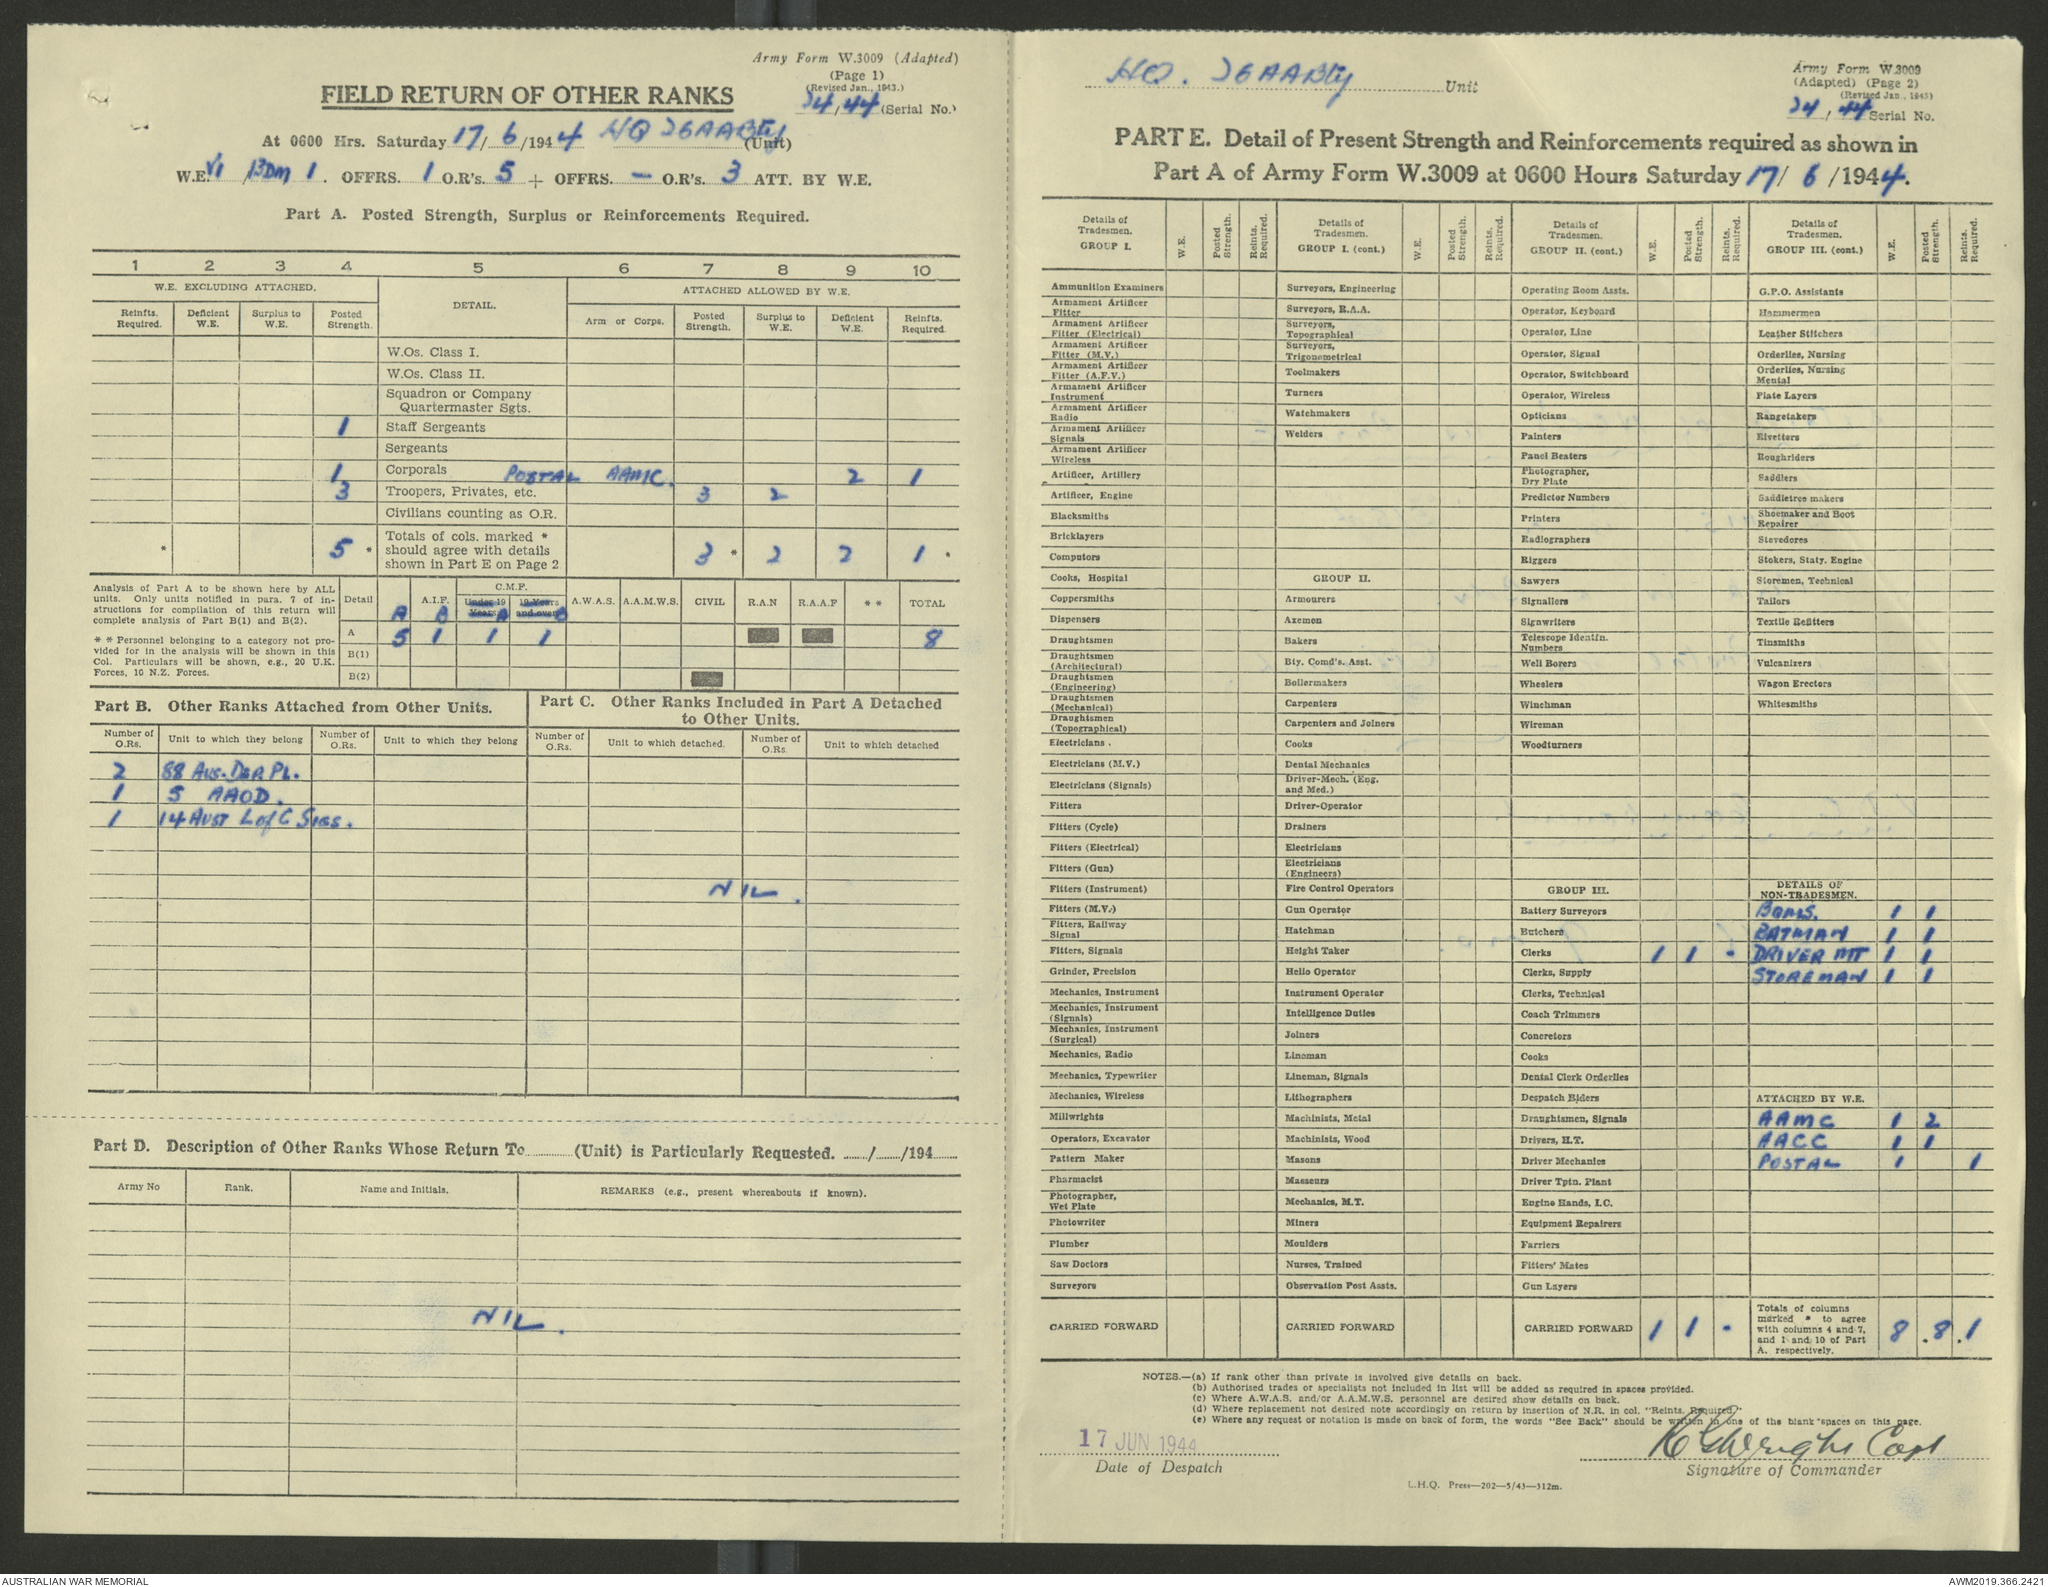 Army Form W.3009 (Adapted)
(Page 1)
(Revised Jan., 1943.)
24/44 (Serial No.)
FIELD RETURN OF OTHER RANKS
At 0600 Hrs. Saturday 17/6/1944 HQ 26 AABty (Unit)
W.E. VI /13DM/1. OFFRS. 1 O.R's. 5 + OFFRS. — O.R's. 3 ATT. BY W.E.
Part A. Posted Strength, Surplus or Reinforcements Required.
1 2 3 4 5 6 7 8 9 10
W.E. EXCLUDING ATTACHED. DETAIL. ATTACHED ALLOWED BY W.E.
Reinfts. Required. Deficient W.E. Surplus to W.E. Posted Strength. Arm or Corps. Posted Strength. Surplus to W.E. Deficient W.E. Reinfts. Required.
W.Os. Class I.
W.Os. Class II.
Squadron or Company
Quartermaster Sgts.
1 Staff Sergeants
Sergeants
1 Corporals POSTAL AAMC. 2 1
3 Troopers, Privates, etc. 3 2
Civilians counting as O.R.
* 5 * Totals of cols. marked * should agree with details shown in Part E on Page 2 3 * 2 2 1 *
Analysis of Part A to be shown here by ALL
units. Only units notified in para. 7 of in-
structions for compilation of this return will
complete analysis of Part B(1) and B(2).
* * Personnel belonging to a category not pro-
vided for in the analysis will be shown in this
Col. Particulars will be shown, e.g., 20 U.K.
Forces, 10 N.Z. Forces.
Detail A.I.F. C.M.F. Under 19 Years 19 Years and over A.W.A.S. A.A.M.W.S. CIVIL R.A.N R.A.A.F * * TOTAL
A B A B
A 5 1 1 1 8
B(1)
B(2)
Part B. Other Ranks Attached from Other Units.
Number of O.Rs. Unit to which they belong Number of O.Rs. Unit to which they belong
2 88 Aus. Dep. Pl.
1 5 AAOD.
1 14 Aust L of C Sigs.
Part C. Other Ranks Included in Part A Detached
to Other Units.
Number of O.Rs. Unit to which detached. Number of O.Rs. Unit to which detached
NIL.
Part D. Description of Other Ranks Whose Return To (Unit) is Particularly Requested. / /194
Army No Rank. Name and Initials. REMARKS (e.g., present whereabouts if known).
NIL.
HQ. 26 AABty Unit
Army Form W.3009
(Adapted) (Page 2)
(Revised Jan., 1943)
24/44 Serial No.
PART E. Detail of Present Strength and Reinforcements required as shown in
Part A of Army Form W.3009 at 0600 Hours Saturday 17/6/1944.
Details of Tradesmen. GROUP I. W.E. Posted Strength. Reints. Required.
Ammunition Examiners
Armament Artificer Fitter
Armament Artificer Fitter (Electrical)
Armament Artificer Fitter (M.V.)
Armament Artificer Fitter (A.F.V.)
Armament Artificer Instrument
Armament Artificer Radio
Armament Artificer Signals
Armament Artificer Wireless
Artificer, Artillery
Artificer, Engine
Blacksmiths
Bricklayers
Computors
Cooks, Hospital
Coppersmiths
Dispensers
Draughtsmen
Draughtsmen (Architectural)
Draughtsmen (Engineering)
Draughtsmen (Mechanical)
Draughtsmen (Topographical)
Electricians.
Electricians (M.V.)
Electricians (Signals)
Fitters
Fitters (Cycle)
Fitters (Electrical)
Fitters (Gun)
Fitters (Instrument)
Fitters (M.V.)
Fitters, Railway Signal
Fitters, Signals
Grinder, Precision
Mechanics, Instrument
Mechanics, Instrument (Signals)
Mechanics, Instrument (Surgical)
Mechanics, Radio
Mechanics, Typewriter
Mechanics, Wireless
Millwrights
Operators, Excavator
Pattern Maker
Pharmacist
Photographer, Wet Plate
Photowriter
Plumber
Saw Doctors
Surveyors
CARRIED FORWARD
Details of Tradesmen. GROUP I. (cont.) W.E. Posted Strength. Reints. Required.
Surveyors, Engineering
Surveyors, R.A.A.
Surveyors, Topographical
Surveyors, Trigonometrical
Toolmakers
Turners
Watchmakers
Welders
GROUP II.
Armourers
Axemen
Bakers
Bty. Comd's. Asst.
Boilermakers
Carpenters
Carpenters and Joiners
Cooks
Dental Mechanics
Driver-Mech. (Eng. and Med.)
Driver-Operator
Drainers
Electricians
Electricians (Engineers)
Fire Control Operators
Gun Operator
Hatchman
Height Taker
Helio Operator
Instrument Operator
Intelligence Duties
Joiners
Lineman
Lineman, Signals
Lithographers
Machinists, Metal
Machinists, Wood
Masons
Masseurs
Mechanics, M.T.
Miners
Moulders
Nurses, Trained
Observation Post Assts.
CARRIED FORWARD
Details of Tradesmen. GROUP II. (cont.) W.E. Posted Strength. Reints. Required.
Operating Room Assts.
Operator, Keyboard
Operator, Line
Operator, Signal
Operator, Switchboard
Operator, Wireless
Opticians
Painters
Panel Beaters
Photographer, Dry Plate
Predictor Numbers
Printers
Radiographers
Riggers
Sawyers
Signallers
Signwriters
Telescope Identfn. Numbers
Well Borers
Wheelers
Winchman
Wireman
Woodturners
GROUP III.
Battery Surveyors
Butchers
Clerks 1 1 -
Clerks, Supply
Clerks, Technical
Coach Trimmers
Concretors
Cooks
Dental Clerk Orderlies
Despatch Riders
Draughtsmen, Signals
Drivers, H.T.
Driver Mechanics
Driver Tptn. Plant
Engine Hands, I.C.
Equipment Repairers
Farriers
Fitters' Mates
Gun Layers
CARRIED FORWARD 1 1 -
Details of Tradesmen. GROUP III. (cont.) W.E. Posted Strength. Reints. Required.
G.P.O. Assistants
Hammermen
Leather Stitchers
Orderlies, Nursing
Orderlies, Nursing Mental
Plate Layers
Rangetakers
Rivetters
Roughriders
Saddlers
Saddletree makers
Shoemaker and Boot Repairer
Stevedores
Stokers, Staty. Engine
Storemen, Technical
Tailors
Textile Refitters
Tinsmiths
Vulcanizers
Wagon Erectors
Whitesmiths
DETAILS OF NON-TRADESMEN.
BQMS. 1 1
BATMAN 1 1
DRIVER MT 1 1
STOREMAN 1 1
ATTACHED BY W.E.
AAMC 1 2
AACC 1 1
POSTAL 1 1
Totals of columns marked * to agree with columns 4 and 7, and 1 and 10 of Part A. respectively. 8 . 8 . 1
NOTES.—(a) If rank other than private is involved give details on back.
(b) Authorised trades or specialists not included in list will be added as required in spaces provided.
(c) Where A.W.A.S. and/or A.A.M.W.S. personnel are desired show details on back.
(d) Where replacement not desired note accordingly on return by insertion of N.R. in col. "Reints. Required."
(e) Where any request or notation is made on back of form, the words "See Back" should be written in one of the blank spaces on this page.
17 JUN 1944
Date of Despatch
Capt
Signature of Commander
L.H.Q. Press—202—5/43—312m.
AUSTRALIAN WAR MEMORIAL
AWM2019.366.2421